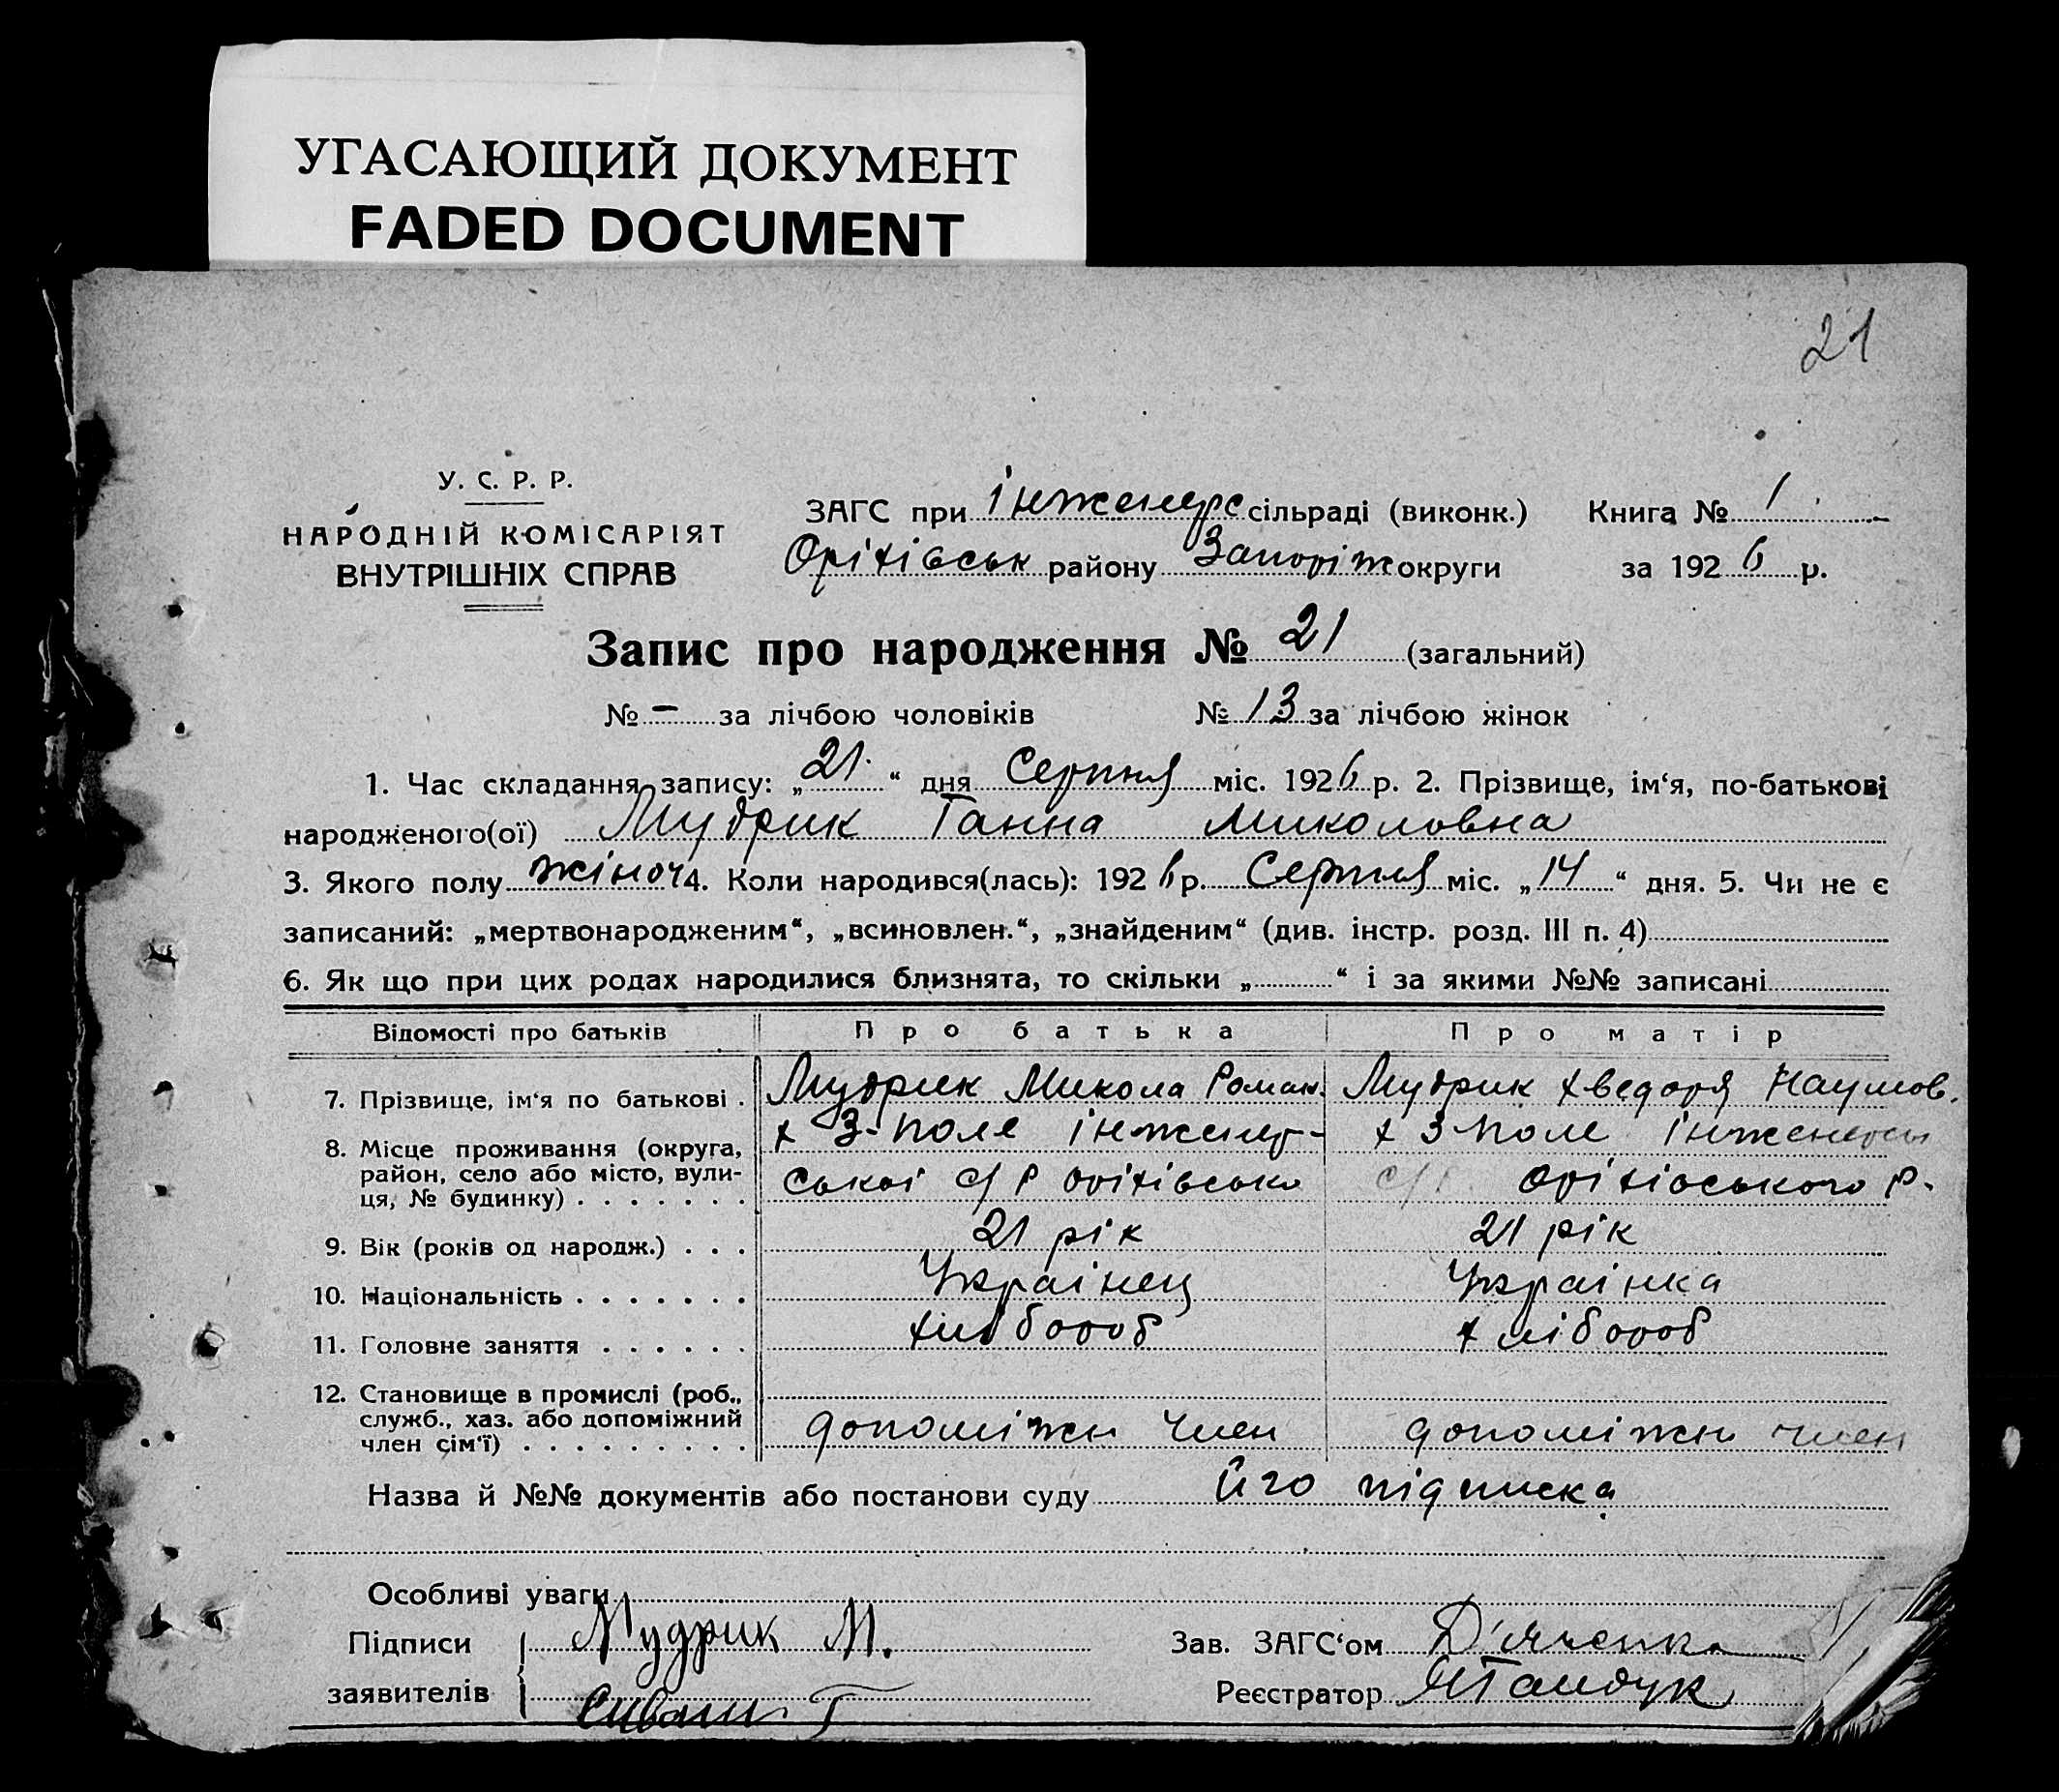 УГАСАЮЩИЙ ДОКУМЕНТ
FADED DOCUMENT
21
У. С. Р. Р.
НАРОДНІЙ КОМІСАРІЯТ
ВНУТРІШНІХ СПРАВ
ЗАГС при Інженерс сільраді (виконк.) Книга № 1
Оріхівськ району Запоріж округи за 1926 р.
Запис про народження № 21 (загальний)
№ - за лічбою чоловіків № 13 за лічбою жінок
1. Час складання запису: „21“ дня Серпня міс. 1926 р. 2. Прізвище, ім‘я, по-батькові
народженого(ої) Мудрик Ганна Миколовна
3. Якого полу жіноч 4. Коли народився(лась): 1926 р. Серпня міс. „14“ дня. 5. Чи не є
записаний: „мертвонародженим“, „всиновлен.“, „знайденим“ (див. інстр. розд. III п. 4)
6. Як що при цих родах народилися близнята, то скільки „ “ і за якими №№ записані
Відомості про батьків Про батька Про матір
7. Прізвище, ім‘я по батькові . Мудрик Микола Роман. Мудрик Хведоря Наумов.
8. Місце проживання (округа, х З-Поле Інженер- х З-Поле Інженерсь
район, село або місто, вули- ської с/р Оріхівсько с/р Оріхівського р.
ця, № будинку) . . . . . . .
9. Вік (років од народж.) . . . 21 рік 21 рік
10. Національність . . . . . . . Украінец Украінка
11. Головне заняття . . . . . . хлібороб хлібороб
12. Становище в промислі (роб.,
служб., хаз. або допоміжний
член сім‘ї) . . . . . . . . . допоміжн член допоміжн член
Назва й №№ документів або постанови суду його підписка
Особливі уваги
Підписи Мудрик М. Зав. ЗАГС‘ом Д'яченко
заявителів Сиваш Г Реєстратор